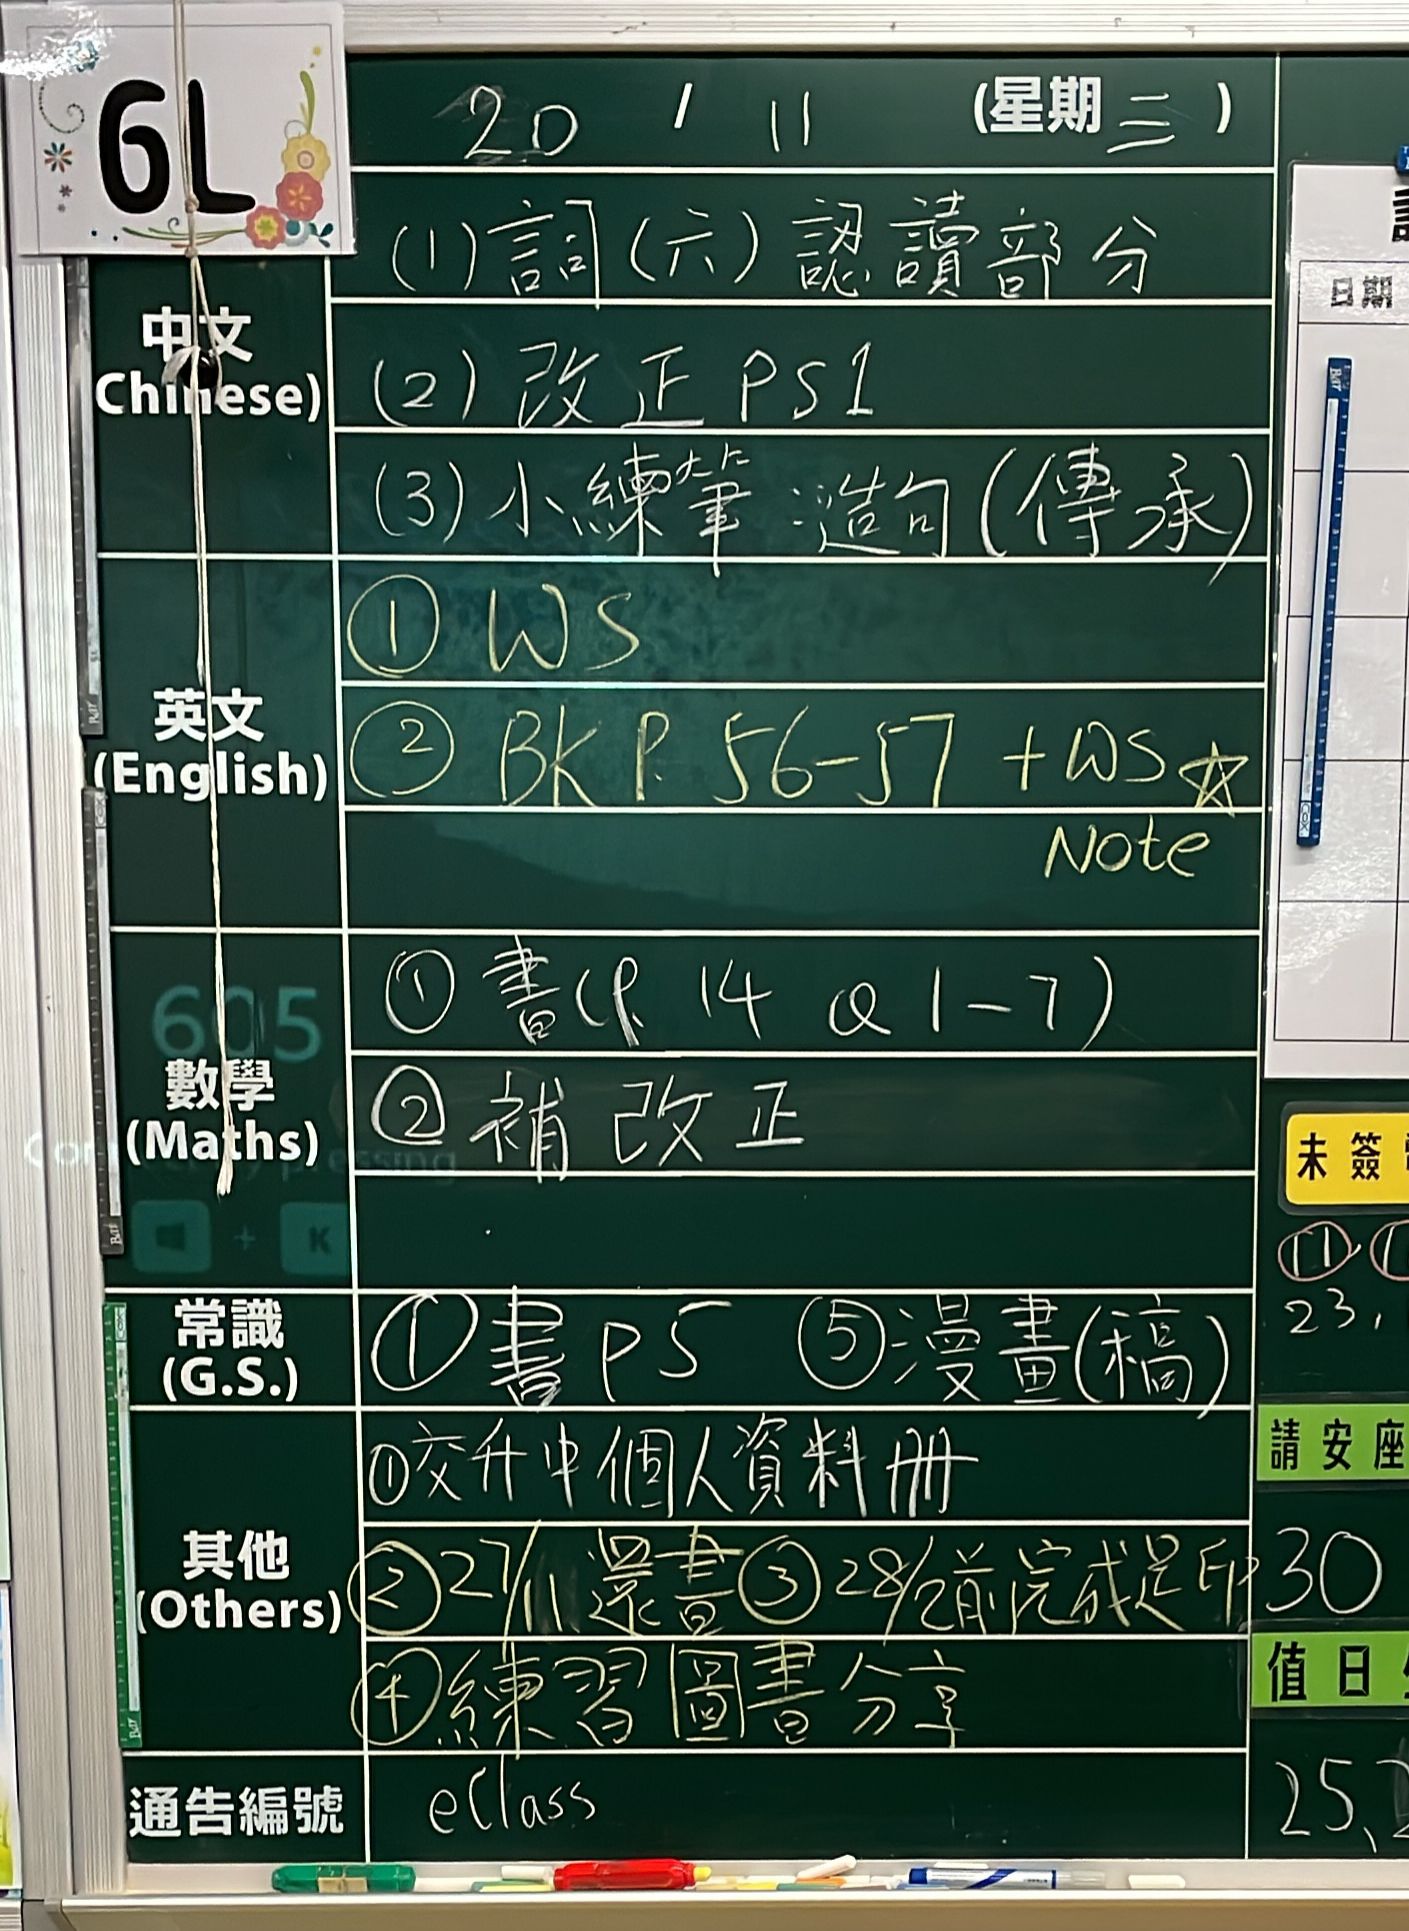 6L
20 / 11 (星期三)
中文
(Chinese)
(1) 詞(六) 認讀部分
(2) 改正 PS1
(3) 小練筆 : 造句(傳承)
英文
(English)
① WS
② BK P. 56-57 + WS ☆
Note
605
數學
(Maths)
① 書(P. 14 Q 1-7)
② 補改正
K
常識
(G.S.)
① 書 P5 ⑤ 漫畫(稿)
其他
(Others)
① 交升中個人資料冊
② 27/11 還書 ③ 28/2前完成足印
④ 練習圖書分享
通告編號
eClass
日期
未簽
⑪
23,
請安座
30
值日
25,